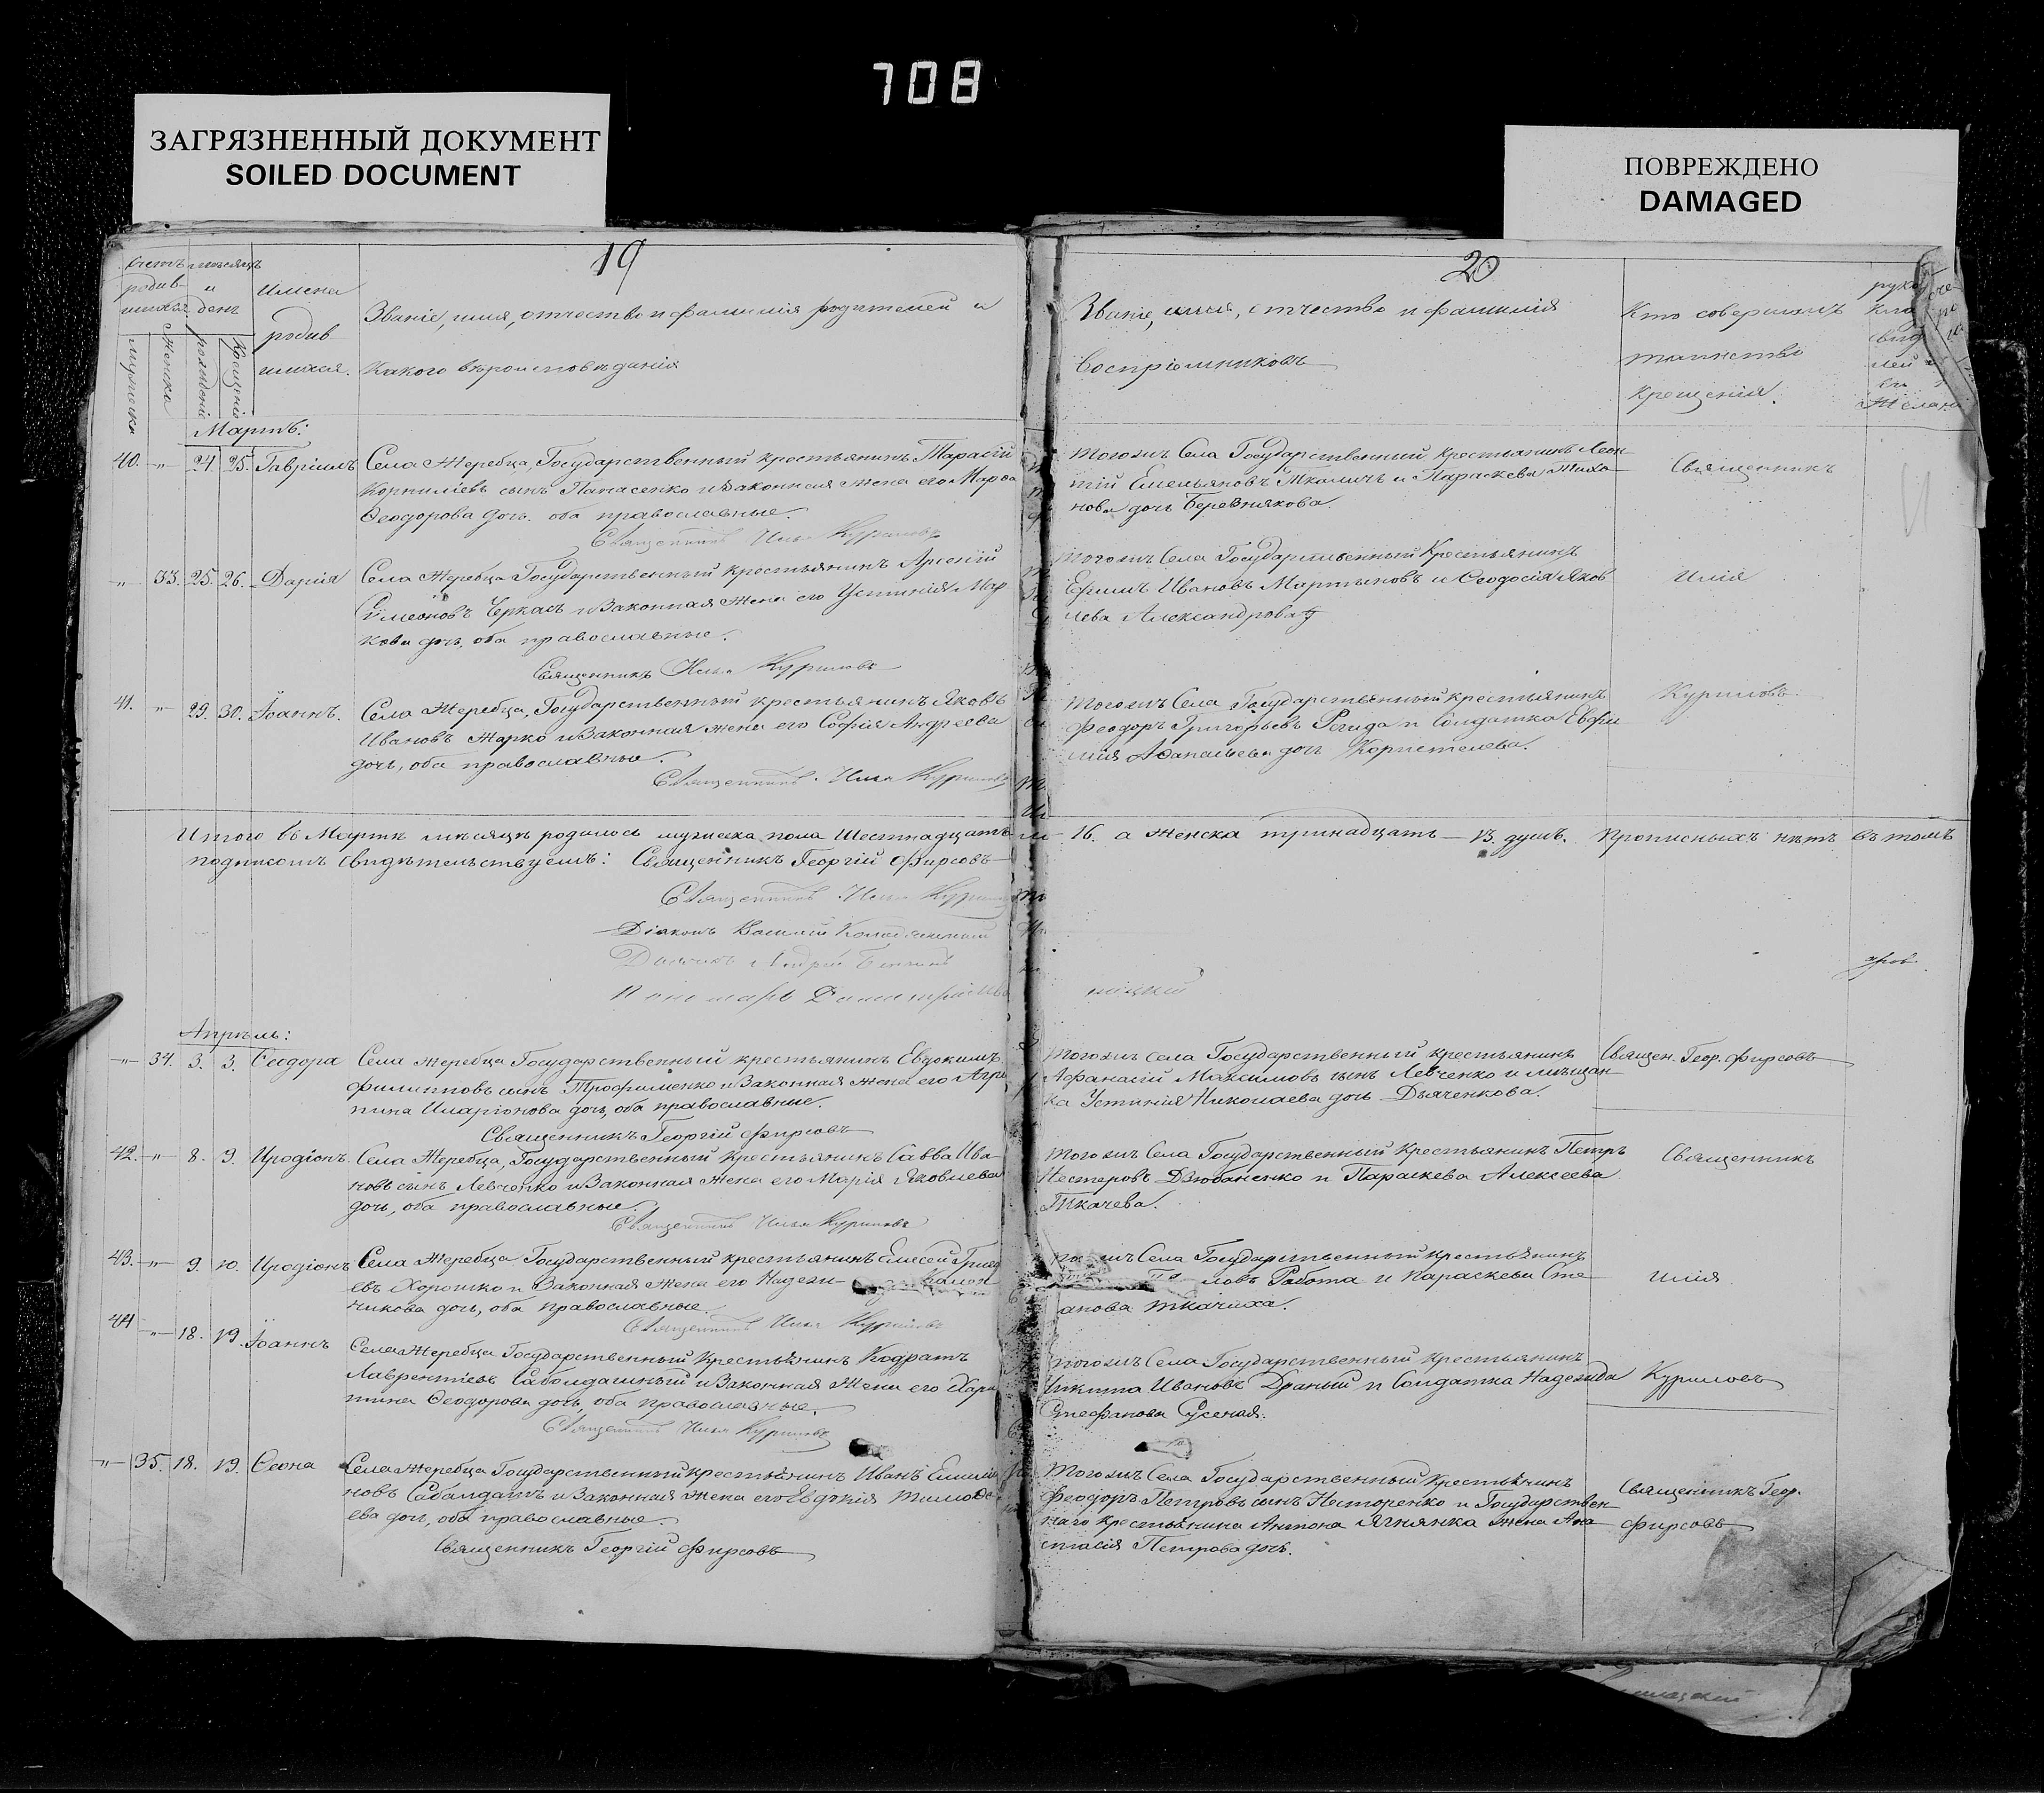 708
ЗАГРЯЗНЕННЫЙ ДОКУМЕНТ
SOILED DOCUMENT
ПОВРЕЖДЕНО
DAMAGED
19
счетъ родив-
шихся
мѣсяцъ
и
день
Имена
родив
шихся.
мужеска
женска
рожденiе
Крещенiе
Званіе, имя, отчество и фамилія родителей и
Какого вѣроисповѣданія
Мартъ:
40. -"- 24. 25. Гавріилъ Села Жеребца, Государственный крестьянинъ Тарасій
Корниліевъ сынъ Панасенко и Законная жена его Марѳа
Ѳеодорова дочь. оба православные.
Священникъ Илья Куриловъ
-"- 33. 25. 26. Дарія Села Жеребца Государственный крестьянинъ Арсеній
Симеоновъ Черкасъ и Законная жена его Устинія Мар
кова дочь, оба православные.
Священникъ Илья Куриловъ
41. -"- 29. 30. Іоаннъ. Села Жеребца, Государственный крестьянинъ Яковъ
Ивановъ Жарко и Законная жена его Софія Андреева
дочь, оба православные.
Священникъ Илья Куриловъ
Итого въ Мартѣ мѣсяцѣ родилось мужеска пола Шестнадцать
подписомъ свидѣтельствуемъ: Священникъ Георгій Фирсовъ
Священникъ Илья Куриловъ
Діаконъ Василій
Дьячекъ Андрей
Пономарь Димитрій
Апрѣль:
-"- 34. 3. 3. Ѳеодора Села Жеребца Государственный крестьянинъ Евдокимъ
Филипповъ сынъ Трофименко и Законная жена его Агри
пина Иларіонова дочь, оба православные.
Священникъ Георгій Фирсовъ
42. -"- 8. 9. Иродіонъ. Села Жеребца, Государственный крестьянинъ Савва Ива
новъ сынъ Левченко и Законная жена его Марія Яковлева
дочь, оба православные.
Священникъ Илья Куриловъ
43. -"- 9. 10. Иродіонъ Села Жеребца Государственный крестьянинъ Елисей
евъ Хорошко и Законная жена его
никова дочь, оба православные.
Священникъ Илья Куриловъ
44 -"- 18. 19. Іоаннъ Села Жеребца Государственный крестьянинъ Кодратъ
Лаврентіевъ и Законная жена его Хари
тина Ѳеодорова дочь, оба православные.
Священникъ Илья Куриловъ
-"- 35. 18. 19. Ѳеона Села Жеребца Государственный крестьянинъ Иванъ
новъ и Законная жена его Евдокія Тимоѳе
ева дочь, оба православные.
Священникъ Георгій Фирсовъ
20
Званіе, имя, отчество и фамилія
Воспріемниковъ
Кто совершилъ
таинство
крещенія.
Тогожъ Села Государственный крестьянинъ Леон
тій Емельяновъ и Параскева Тихо
нова дочь Березнякова.
Священникъ
Тогожъ Села Государственный Крестьянинъ
Ефимъ Ивановъ Мартыновъ и Ѳеодосія Яков
лева Александрова
Илія
Тогожъ Села Государственный крестьянинъ
Феодоръ Григорьевъ и Солдатка Евфи
мія Аѳанасьева дочь
Куриловъ.
16. а женска тринадцать — 13. душъ. Прописныхъ нѣтъ въ томъ
Тогожъ села Государственный крестьянинъ
Афанасій Максимовъ сынъ Левченко и мѣщан
ка Устинія Николаева дочь Дьяченкова.
Священ. Геор. Фирсовъ
Тогожъ Села Государственный крестьянинъ Петръ
Нестеровъ Дзюбаненко и Параскева Алексеева
Ткачева.
Священникъ
Села Государственный крестьянинъ
Работа и Параскева Сте
анова Ткачиха.
Илія
Тогожъ Села Государственный крестьянинъ
Никита Ивановъ Драный и Солдатка Надежда
Стефанова
Куриловъ
Тогожъ Села Государственный Крестьянинъ
Феодоръ Петровъ сынъ Несторенко и Государствен
наго крестьянина Антона Ягнянка жена Ана
стасія Петрова дочь.
Священникъ Геор.
Фирсовъ